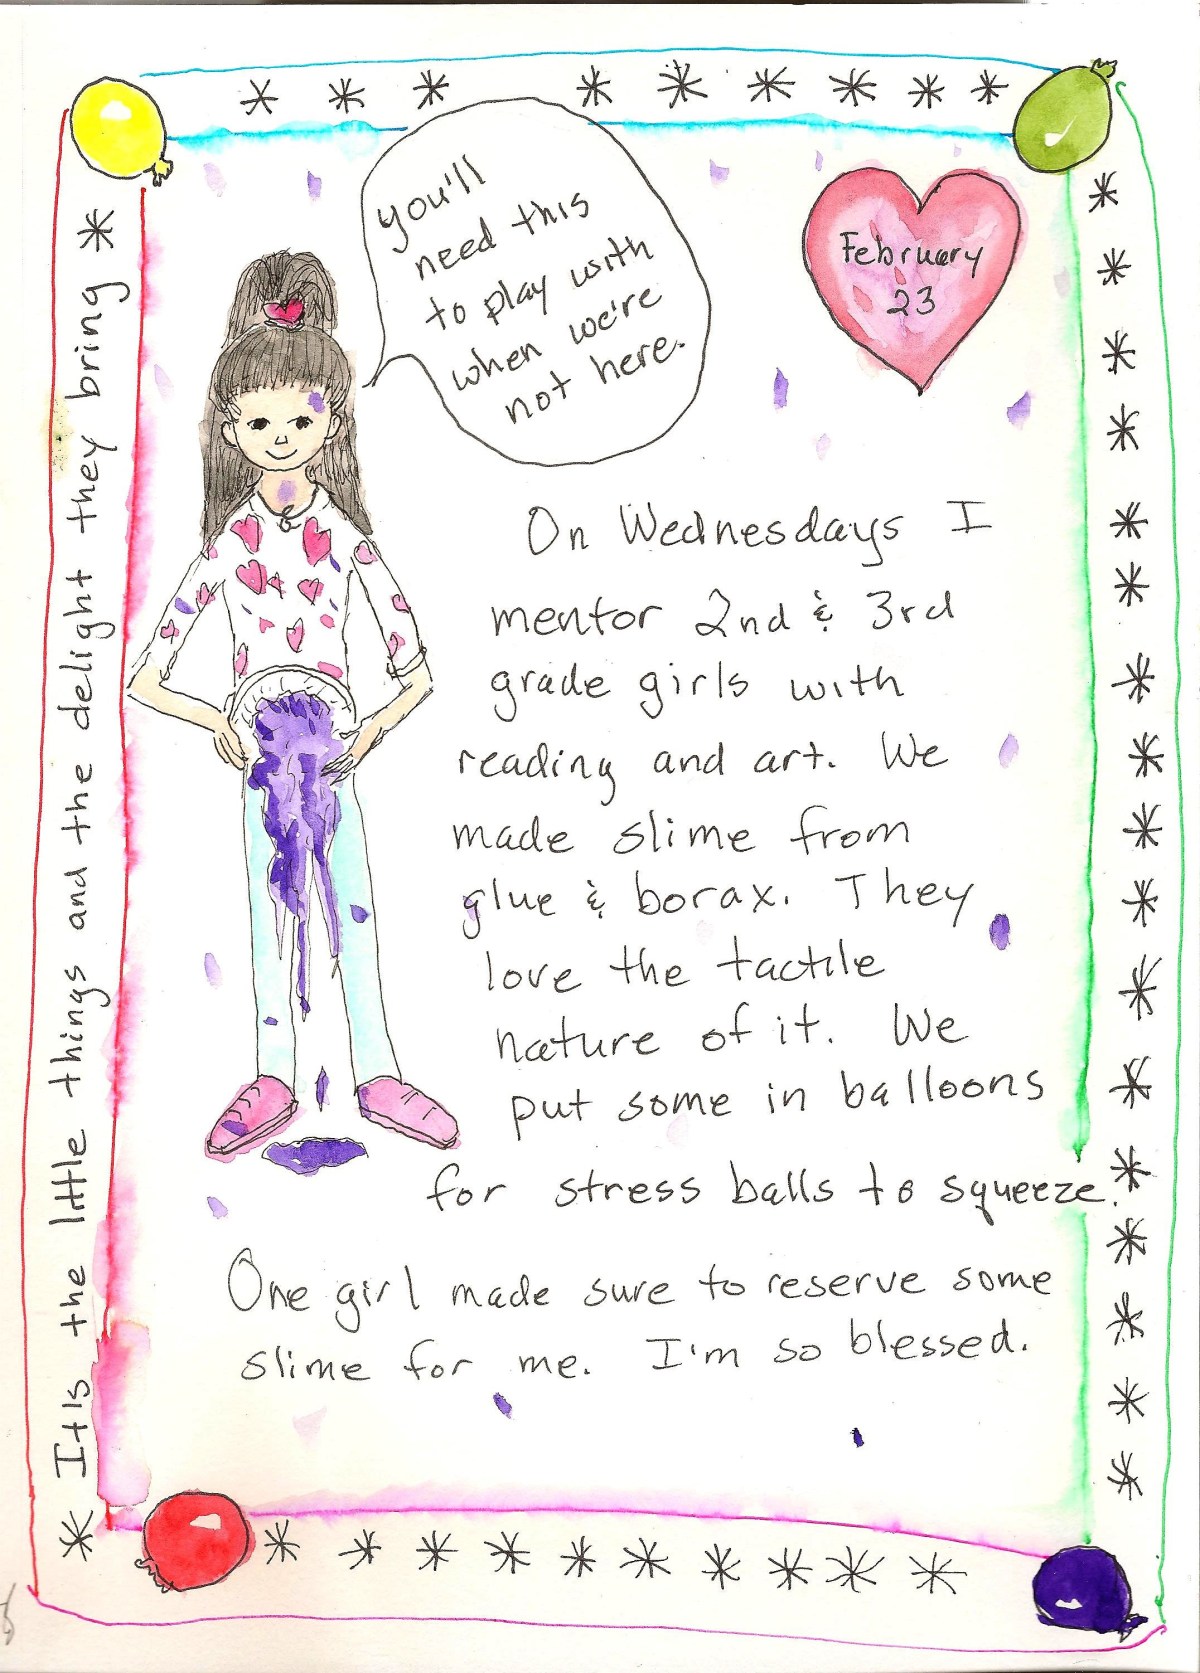 you'll
need this
to play with
when we're
not here.
February
23
On Wednesdays I
mentor 2nd & 3rd
grade girls with
reading and art. We
made slime from
glue & borax. They
love the tactile
nature of it. We
put some in balloons
for stress balls to squeeze.
One girl made sure to reserve some
slime for me. I'm so blessed.
It is the little things and the delight they bring